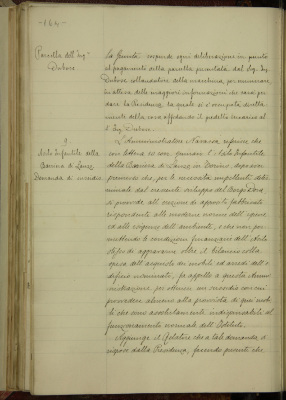 -164-
Parcella dell'Ing.
Dubosc
la Giunta sospende ogni deliberazione in punto
al pagamento della parcella presentata dal Sig. Ing.
Dubosc collaudatore della macchina, per
in attesa delle maggiori informazioni
dare la Presidenza, la quale si è
mente della cosa affidando il
l'Ing. Dubosc.
9
Asilo Infantile della
Barriera di Lanzo
Domanda di sussidio
L'Amministratore Navazza riferisce che
con lettera 20 corr. gennaio l'Asilo Infantile
della Barriera di Lanzo in Torino
premesso che, per le necessità impellenti deter-
minate dal crescente sviluppo del Borgo Dora
si provvide all'erezione di apposito fabbricato
rispondente alle moderne norme dell'igiene
ed alle esigenze dell'ambiente, e che non per-
mettendo le condizioni finanziarie dell'Asilo
stesso di aggravare oltre il bilancio colla
spesa dell'acquisto dei mobili ed arredi dell'e-
dificio, fa appello a questa Ammi-
nistrazione per ottenere un sussidio con cui
provvedere almeno alla provvista di quei mobi-
li che sono assolutamente indispensabili al
funzionamento normale dell'Istituto.
Aggiunge il Relatore che a tale domanda è
risposto dalla Presidenza, facendo presente che